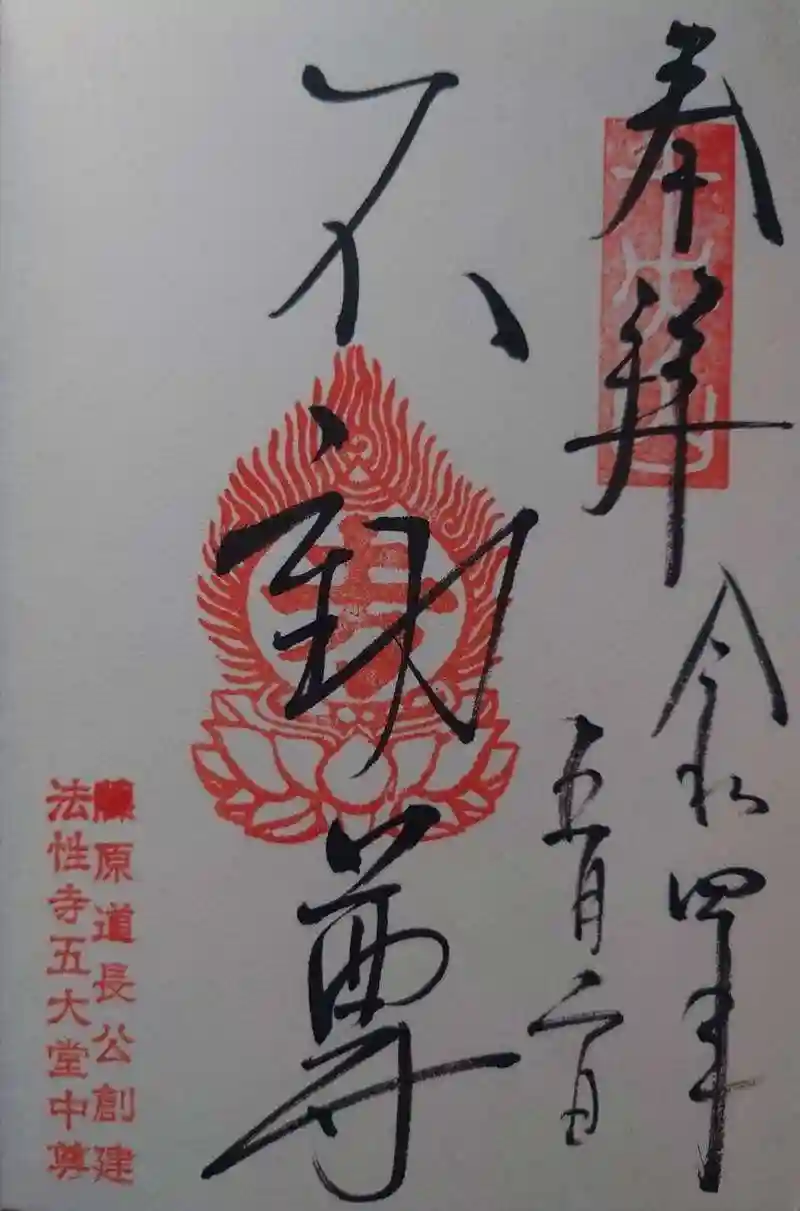 奉拝
令和四年
五月二日
不動尊
藤原道長公創建
法性寺五大堂中尊